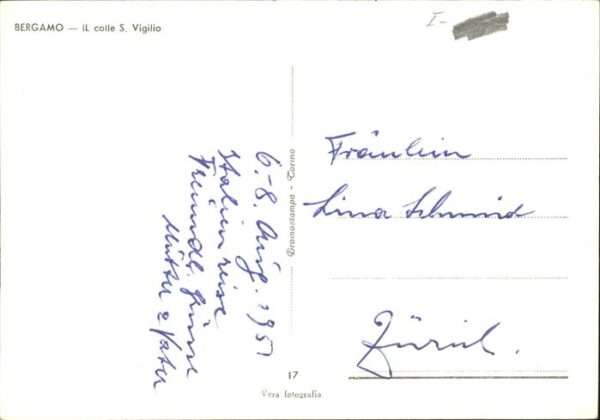 BERGAMO — IL colle S. Vigilio
I-
6.-8. Aug. 1951
Italienreise
Freundl. Grüsse
Mutter & Vater
Bromostampa - Torino
Fräulein
Lina Schmid
Zürich.
17
Vera fotografia